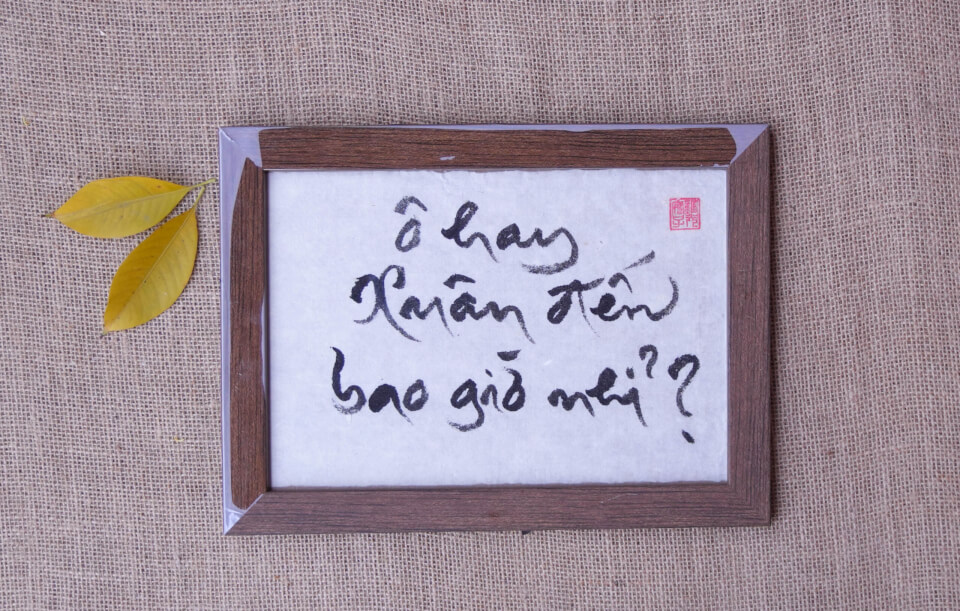 ô hay
Xuân đến
bao giờ nhỉ?